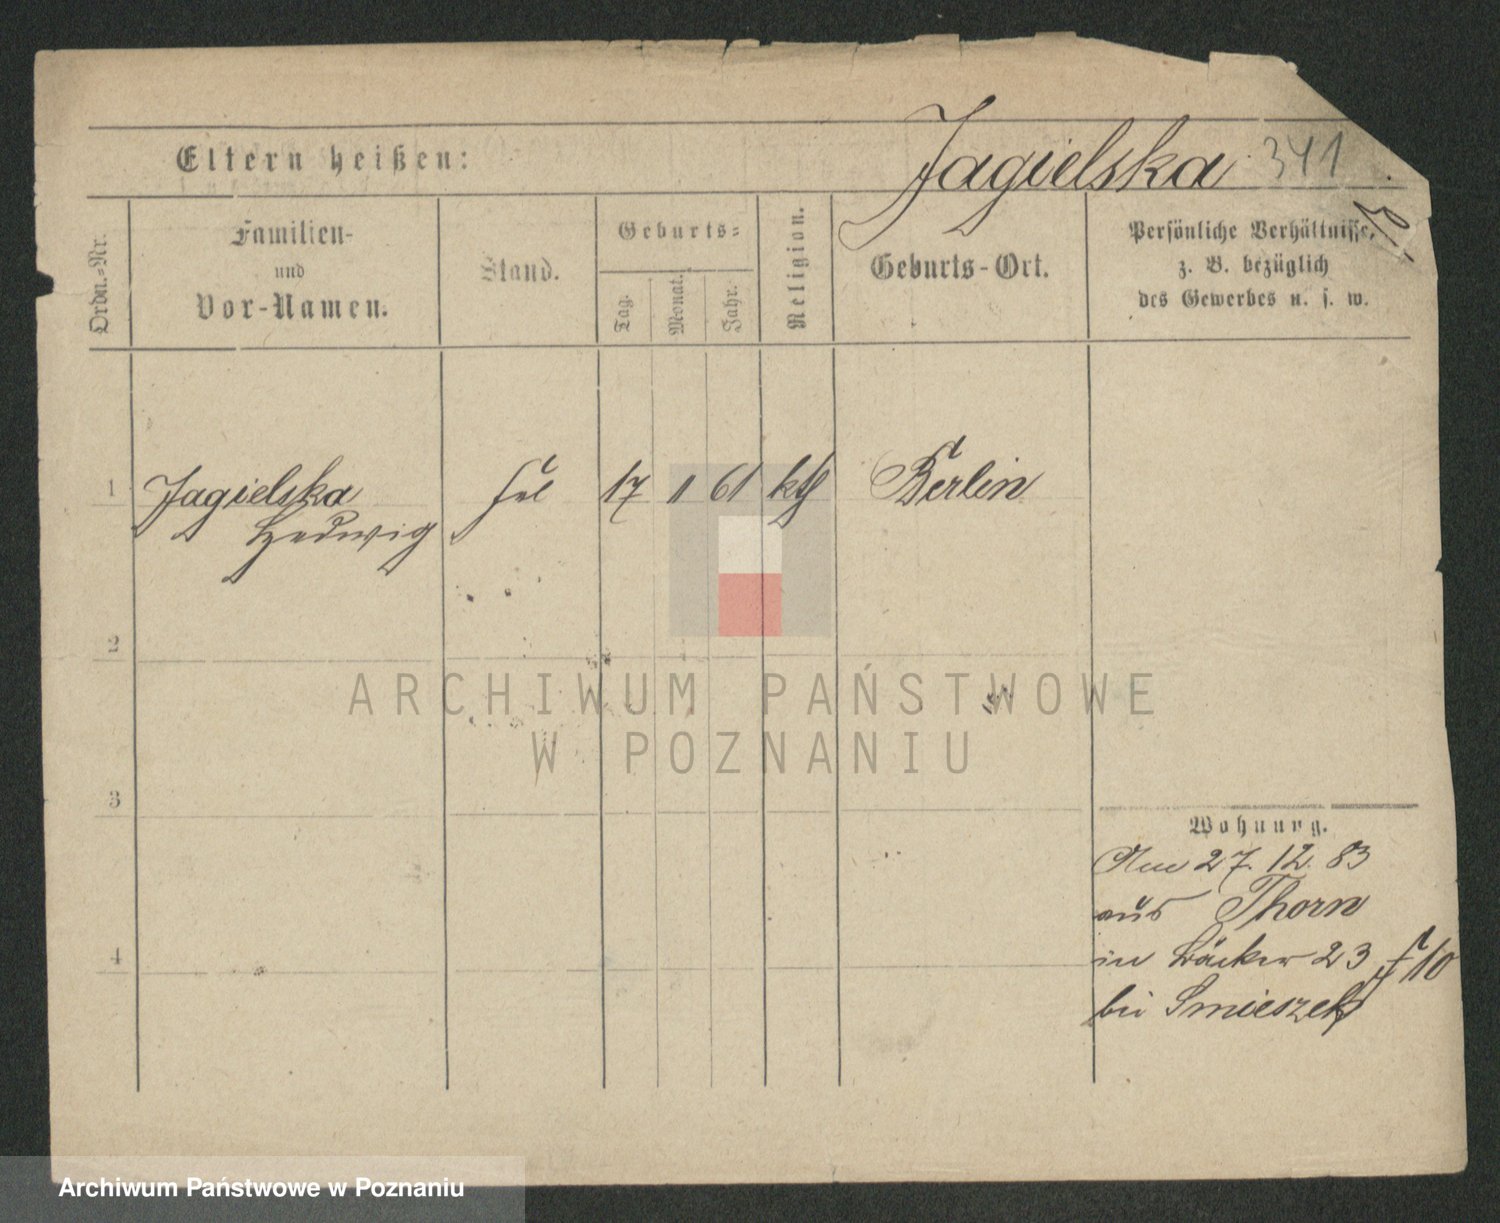 Jagielska 341
Eltern heißen:
Ordn.-Nr.
Familien-
und
Vor-Namen.
Stand.
Geburts-
Tag.
Monat.
Jahr.
Religion.
Geburts-Ort.
Persönliche Verhältnisse,
z. B. bezüglich
des Gewerbes u. s. w.
1 Jagielska
Hedwig
17 11 61 kth Berlin
2
3
4
Wohnung.
27. 12. 83
aus Thorn
in Bäcker 23
bei Smieszek
ARCHIWUM PAŃSTWOWE
W POZNANIU
Archiwum Państwowe w Poznaniu